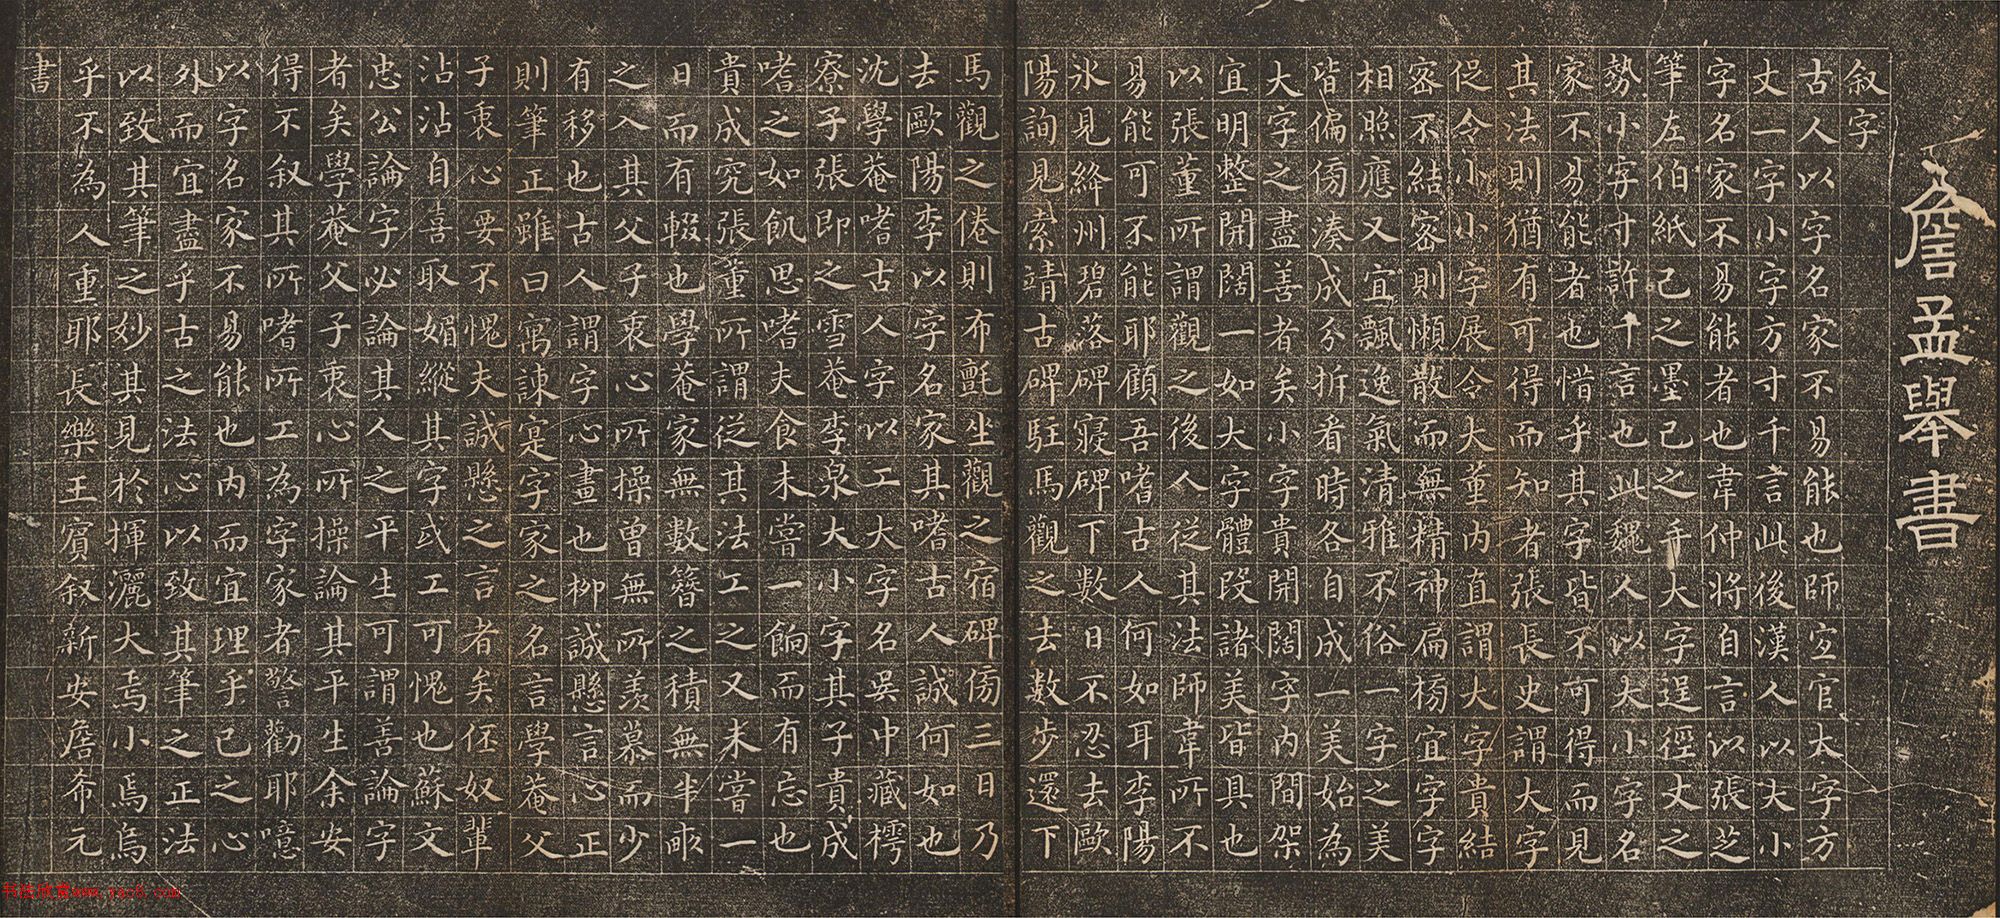 詹孟舉書
叙字
古人以字名家不易能也師宜官大字方
丈一字小字方寸千言此後漢人以大小
字名家不易能者也韋仲將自言以張芝
筆左伯紙己之墨己之手大字逞徑丈之
勢小字寸許千言也此魏人以大小字名
家不易能者也惜乎其字皆不可得而見
其法則猶有可得而知者張長史謂大字
促令小小字展令大董内直謂大字貴結
密不結密則懶散而無精神扁榜宜字字
相照應又宜飄逸氣清雅不俗一字之美
皆偏傍湊成分拆看時各自成一美始為
大字之盡善者矣小字貴開闊字内間架
宜明整開闊一如大字體段諸美皆具也
以張董所謂觀之後人從其法師韋所不
易能可不能耶顧吾嗜古人何如耳李陽
氷見絳州碧落碑寢碑下數日不忍去歐
陽詢見索靖古碑駐馬觀之去數步還下
馬觀之倦則布氈坐觀之宿碑傍三日乃
去歐陽李以字名家其嗜古人誠何如也
沈學菴嗜古人字以工大字名吳中藏樗
寮子張即之雪菴李泉大小字其子貴成
嗜之如飢思嗜夫食未嘗一餉而有忘也
貴成究張董所謂從其法工之又未嘗一
日而有輟也學菴家無數簪之積無半畝
之入其父子衷心所操曾無所羨慕而少
有移也古人謂字心畫也柳誠懸言心正
則筆正雖曰寓諫寔字家之名言學菴父
子衷心要不愧夫誠懸之言者矣伾奴輩
沾沾自喜取媚縱其字或工可愧也蘇文
忠公論字必論其人之平生可謂善論字
者矣學菴父子衷心所操論其平生余安
得不叙其所嗜所工為字家者警勸耶噫
以字名家不易能也内而宜理乎己之心
外而宜盡乎古之法心以致其筆之正法
以致其筆之妙其見於揮灑大焉小焉烏
乎不為人重耶長樂王賓叙新安詹希元
書
书法欣赏www.yac8.com